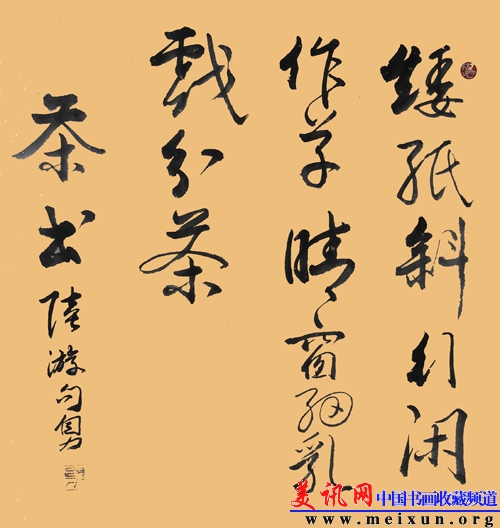 矮紙斜行闲
作草晴窗細乳
戲分茶
茶书 陸游句
美讯网 中国书画收藏频道
www.meixun.org